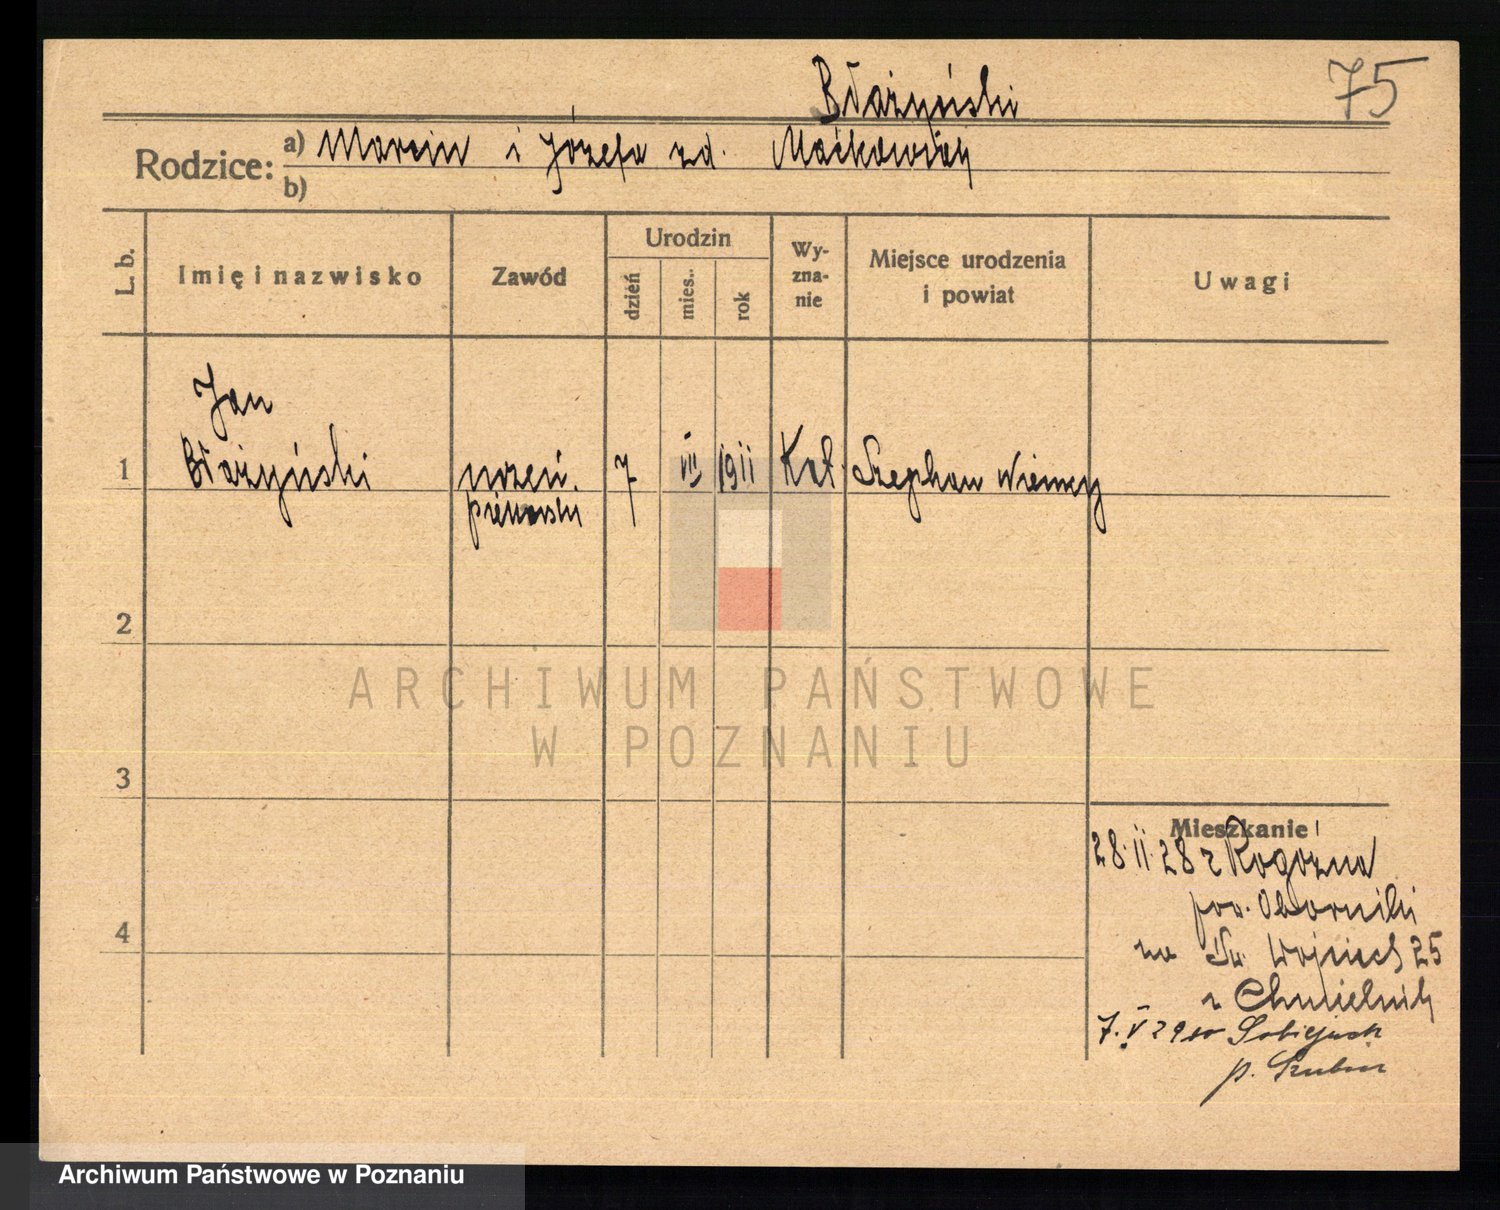 Błażyński
75
Rodzice: a) Marcin i Józefa zd. Maćkowiak
b)
L. b.
Imię i nazwisko
Zawód
Urodzin
dzień
mies.
rok
Wy-
zna-
nie
Miejsce urodzenia
i powiat
Uwagi
Jan
1 Błażyński uczeń 7 VII 1911 Kat.
2
ARCHIWUM PAŃSTWOWE
W POZNANIU
3
Mieszkanie
28.II.28 z Rogoźna
pow. Oborniki
na Św. Wojciech 25
4
z Chmielnik
7.V 29 do Sobiejuch
p. Szubin
Archiwum Państwowe w Poznaniu